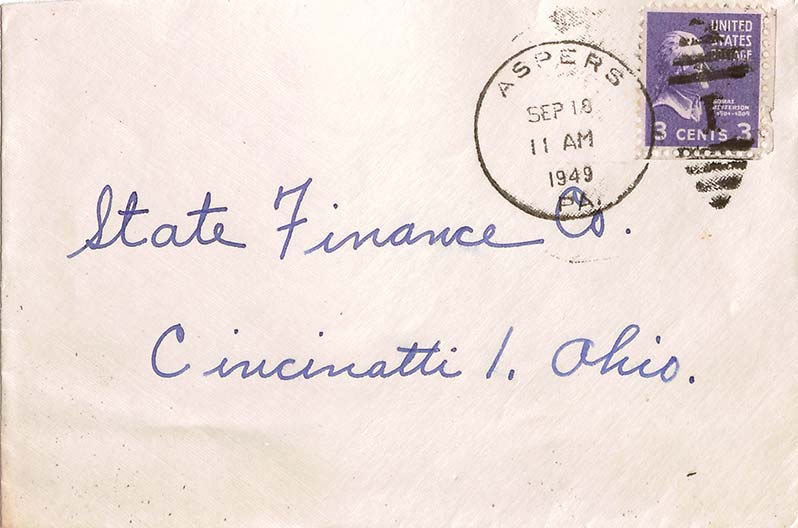 UNITED
STATES
POSTAGE
THOMAS
JEFFERSON
1801-1809
3 CENTS 3
ASPERS
SEP 18
11 AM
1949
PA.
State Finance Co.
Cincinatti 1. Ohio.